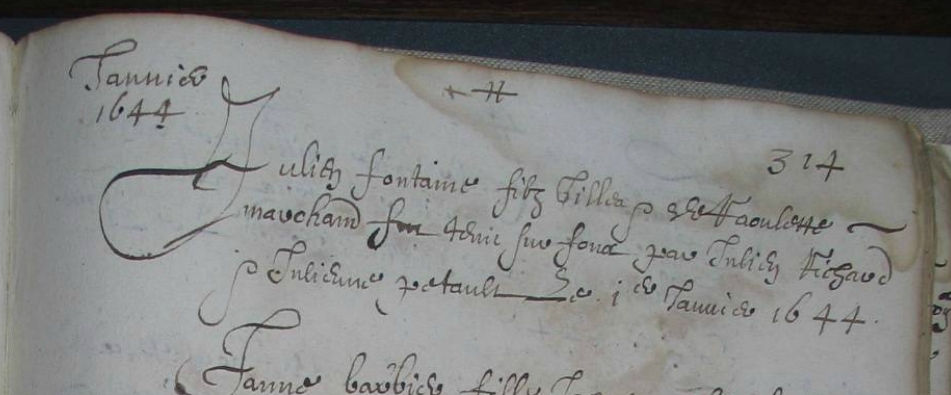 Janvier
1644
314
Julien fontaine filz Gilles & de Raoulette
marchand fut tenu sur fons par Julien Richard
& Julienne petault Le i er Janvier 1644.
Janne barbier fille